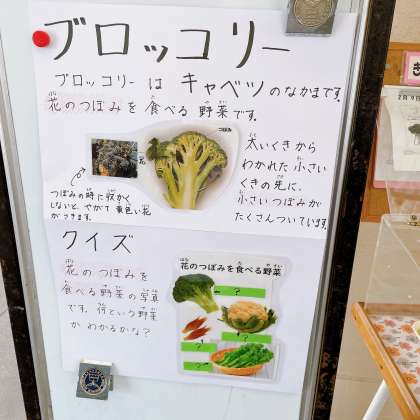 ブロッコリー
ブロッコリーは キャベツのなかまです。
花のつぼみを食べる野菜です。
つぼみ
花
つぼみの時に収かく
しないと、やがて黄色い花
がさきます。
太いくきから
わかれた小さい
くきの先に、
小さいつぼみが
たくさんついています。
クイズ
花のつぼみを
食べる野菜の写真
です。何という野菜
か わかるかな?
花のつぼみを食べる野菜
?
?
?
?